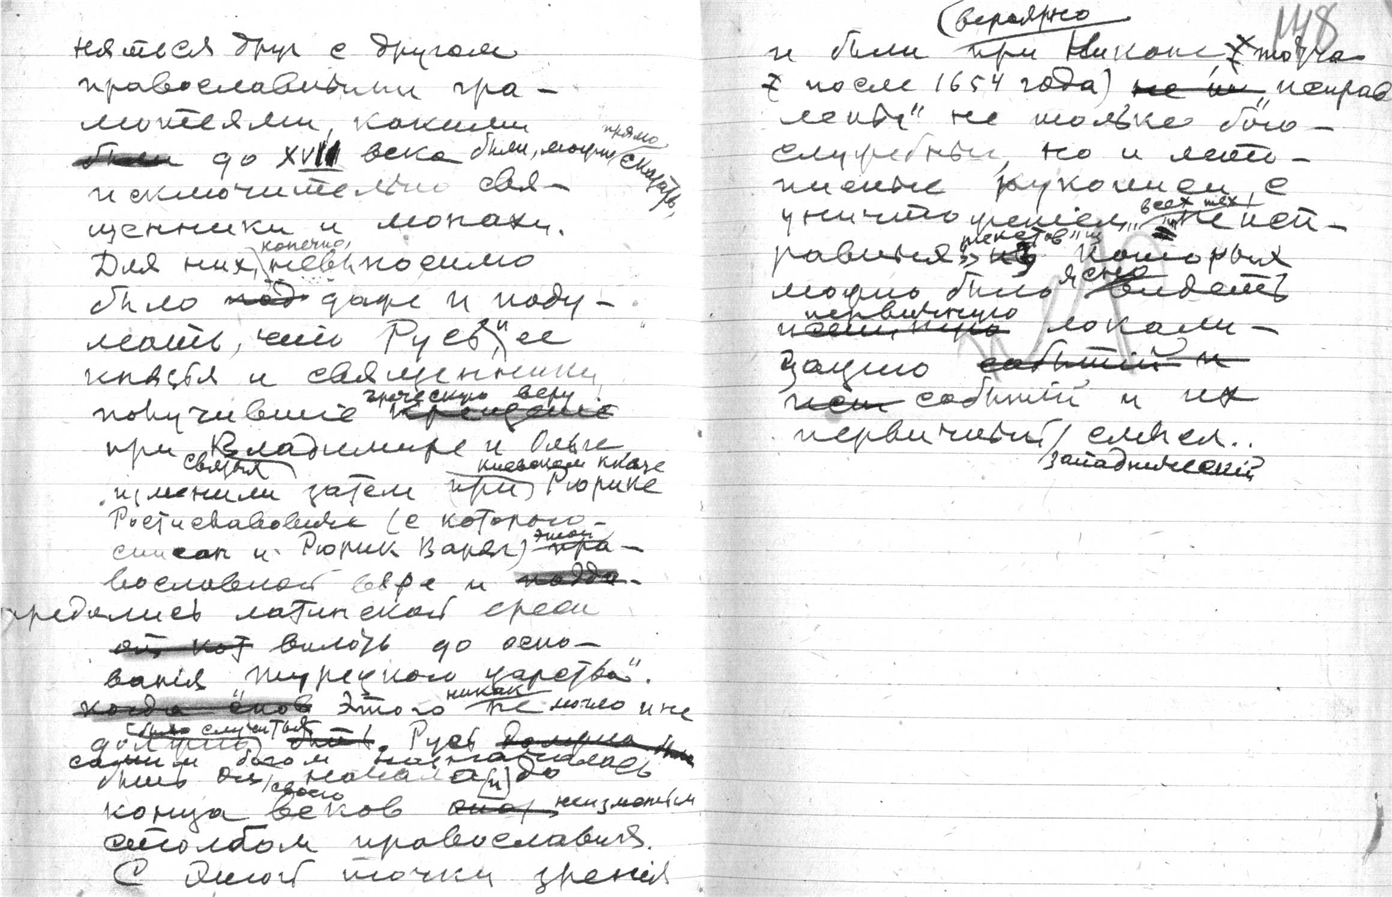 няться друг с другом
православными гра-
мотеями, какими
были до XVIII века были, можно прямо сказать,
исключительно свя-
щенники и монахи.
Для них, конечно, невыносимо
было под даже и поду-
мать, что Русь, и ее
князья и священники,
получившие греческую веру крещение
при Владимире и Ольге
изменили затем при киевском князе Рюрике
Ростиславовиче (с которого
списан и Рюрик Варяг) этой пра-
вославной вере и
предались латинской
от кот вплоть до осно-
вания турецкого царства".
когда снов Этого никак не могло и не
должно было случиться быть. Русь должна
самим богом
быть от начала и до
конца своего веков неизменным
столбом православия.
С этой точки зрения
148
и были (вероятно при Никоне, тотча
с после 1654 года) исправ
лены" не только бого-
служебные, но и лето-
писные рукописи с
уничтожением всех тех неисп-
равных текстов" из которых
можно было ясно видеть
первичную локали-
зацию событий и
событий и их
первичный западнический смысл..